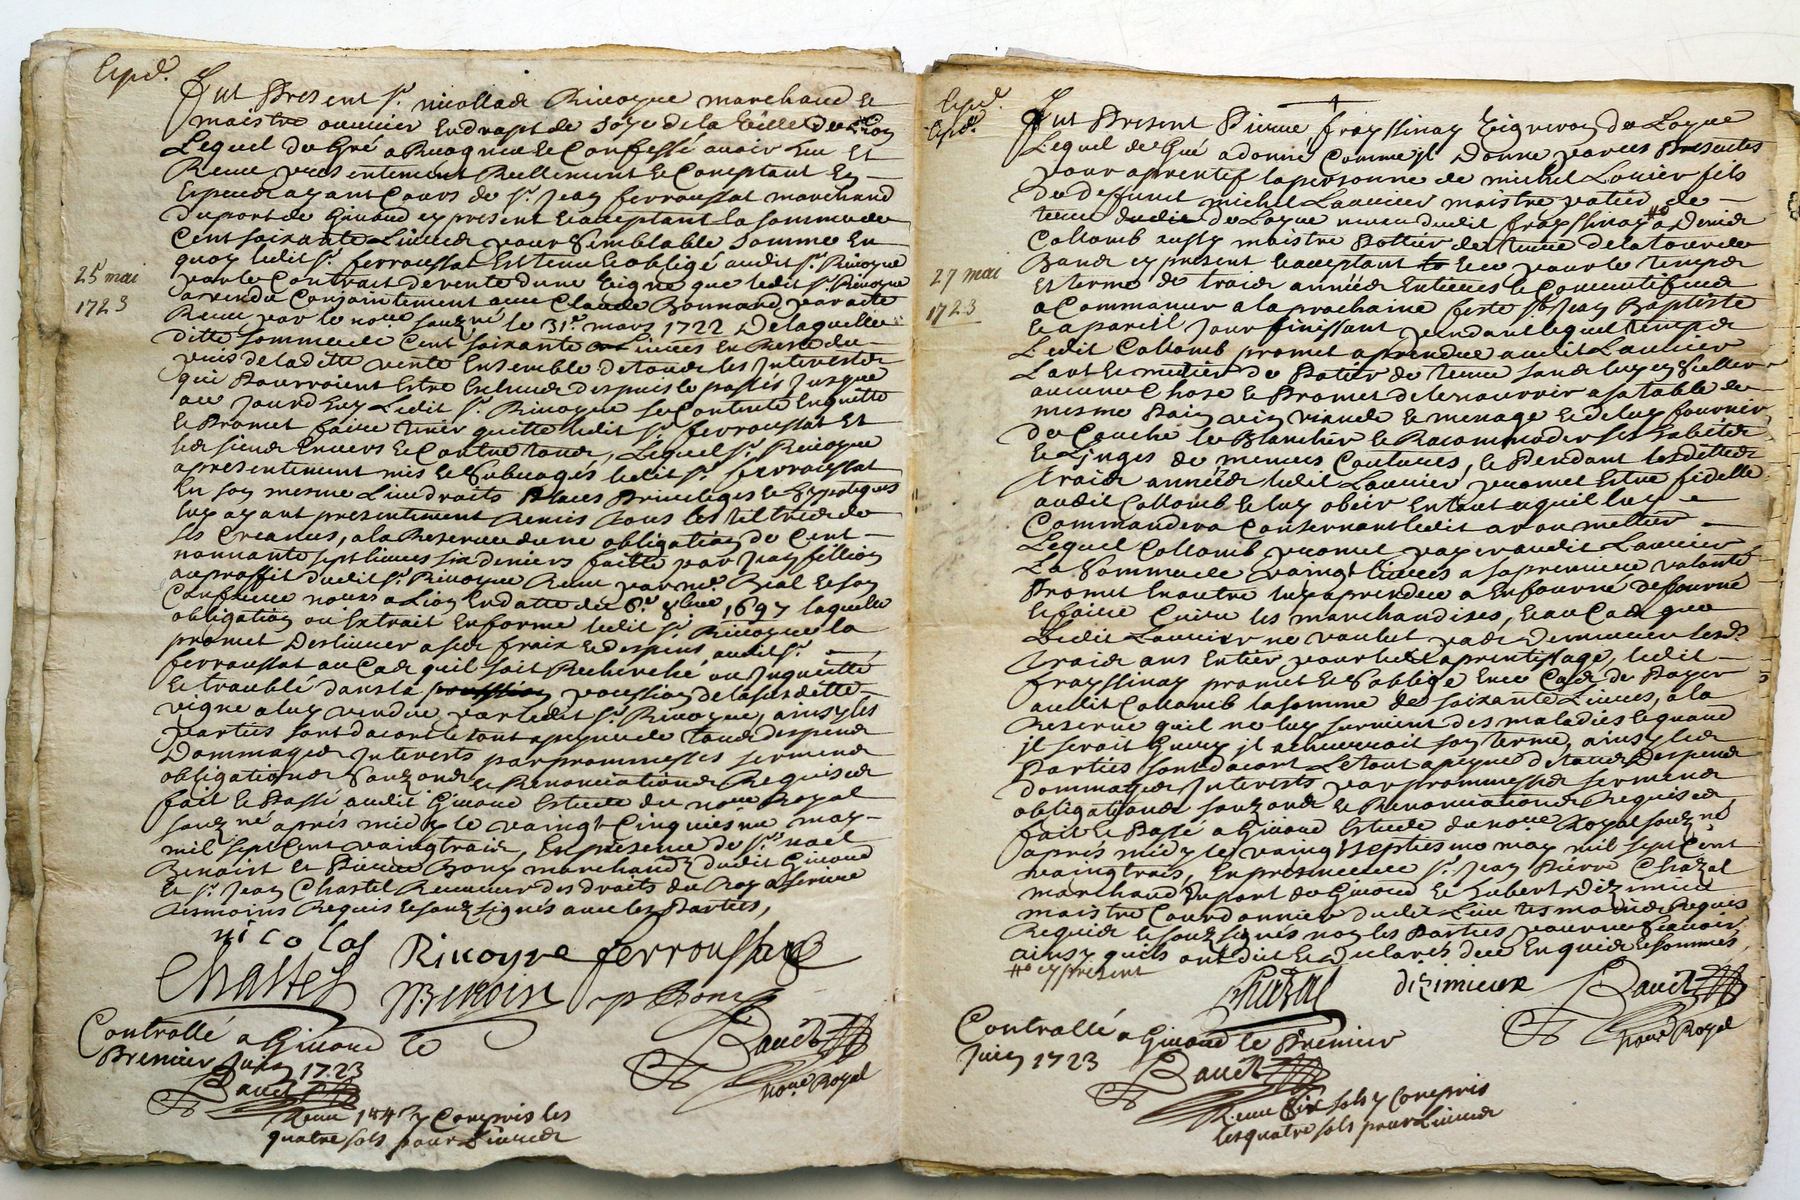 Expd.
Fut Present Sr. nicollas Ricoyre marchand Et
maistre ouurier En drapt de Soye de la Ville de Lion
Lequel de Gré a Recognu Et Confessé auoir Eu Et
Receu presentement Reellement Et Comptant En
Especes ayant Cours de Sr. Jean ferroussat marchand
du port de Giuord cy present Et acceptant la somme de
Cent soixante Liures pour Semblable Somme En
quoy ledit Sr. ferroussat Est tenu Et obligé audit Sr. Ricoyre
par le Contrait de vente d'une Vigne que ledit Sr. Ricoyre
25 mai
1723
a vendu Conjointement auec Claude Bonnard par acte
Receu par le nore. souzné le 31e. mars 1722 De laquelle
ditte somme de Cent soixante Liures En Reste du
prix de la ditte vente Ensemble de tous les Interests
qui Pourroient Estre Escheus despuis le passé Jusque
au Jourd'huy Ledit Sr. Ricoyre se Contente En quitte
Et Promet faire tenir quitte ledit Sr. ferroussat Et
les siens Enuers Et Contre tous, Lequel Sr. Ricoyre
a presentement mis Et Subrogé ledit Sr. ferroussat
En son mesme Lieu droits Places Priuileges Et hypoteques
luy ayant presentement Remis tous les tiltres de
ses Creances, a la Reserue d'une obligation de Cent
nonnante sept liures six deniers faitte par Jean fillion
au proffit dudit Sr. Ricoyre Receu par me. Rial Et son
Confrere nores a Lion En datte du 6e. 8bre 1697 laquelle
obligation ou Extrait En forme ledit Sr. Ricoyre la
promet Desliurer a ses frais Et despens audit Sr.
ferroussat au Cas qu'il soit Recherché ou Inquietté
Et troublé dans la possession de la susditte
vigne a luy vendue par ledit Sr. Ricoyre, ainsy les
parties sont d'acort Le tout a peyne de tous despens
Dommages Interests par prommesses serments
obligations souz ons Et Renonciations Requises
fait Et Passé audit Giuord Estude du nore Royal
souz né apres midy le vaingt Cinquiesme may
mil sept Cent vaingtrois, En presence de Srs. noel
Benoist Et Pierre Bony marchands dudit Giuord
Et Sr. Jean Chastel Receueur des droits du Roy a Giuord
tesmoins Requis Et souz signés auec les Parties,
nicolas Ricoyre ferroussat
Chastel N Benoist p Bony
Controllé a Giuord le
Premier Juin 1723
Baudt
nore. Royal
Baudt
Receu y Compris les
quatre sols pour Liures
Expd.
Expd.
Fut Present Pierre frayssinay Vigneron de Loyre
Lequel de Gré a donné Comme Jl Donne par ces Presentes
pour aprentif la personne de michel Laurier fils
de deffunt michel Laurier maistre potier de
terre dudit de Loyre neueu dudit frayssinay a Denis
Collomb aussy maistre Pottier de terre de la tour de
Bande cy present Et acceptant Et Ce pour le temps
27 mai
1723
Et terme de trois années Entieres Et Consecutiues
a Commancer a la prochaine feste St. Jean Baptiste
Et a pareil Jour finissant pendant lequel temps
Ledit Collomb promet aprendre audit Laurier
L'art Et metier de Potier de terre sans luy En Celler
aucune Chose Et Promet de le nourrir a sa table de
mesme Pain vin viande Et menage Et de luy fournir
de Couche le Blanchir Et Racommoder ses habits
Et Linges de menues Coutures, Et Pendant lesdittes
trois années ledit Laurier promet Estre fidelle
audit Collomb Et luy obeir En tout a quil luy
Commandera Consernant ledit art ou mettier
Lequel Collomb promet payer audit Laurier
La Somme de vaingt liures a sa premiere volonté
Promet En outre luy aprendre a Enfourné defourné
Et faire Cuire les marchandises, Et au Cas que
Ledit Laurier ne voulut pas Demeurer lesd.
trois ans Entier pour led aprentissage, ledit
frayssinay promet Et S'oblige En ce Cas de Payer
audit Collomb la somme de soixante Liures, a la
Reserue qu'il ne luy suruient des maladies Et quand
jl seroit Guery jl acheueroit son terme, ainsy les
Parties sont d'acort Le tout a peyne de tous Despens
dommages Interests par prommesses serments
obligations souz ons Et Renonciations Requises
fait Et Passé a Giuord Estude du nore Royal souz né
apres midy le vaingtseptiesme may mil sept Cent
vaingtrois, En presence de Sr. Jean Pierre Chazal
marchand du port de Giuord Et hubert Dizimieu
maistre Cordonnier dudit Lieu tesmoins Requis
Requis Et souz signés non les Parties pour ne Scauoir
ainsy quils ont dit Et Declaré de ce Enquis Et sommés
cy present
Chazal dizimieux Baudt
nore Royal
Controllé a Giuord le Premier
Juin 1723
Baudt
Receu Six sols y Compris
les quatre sols pour Liures